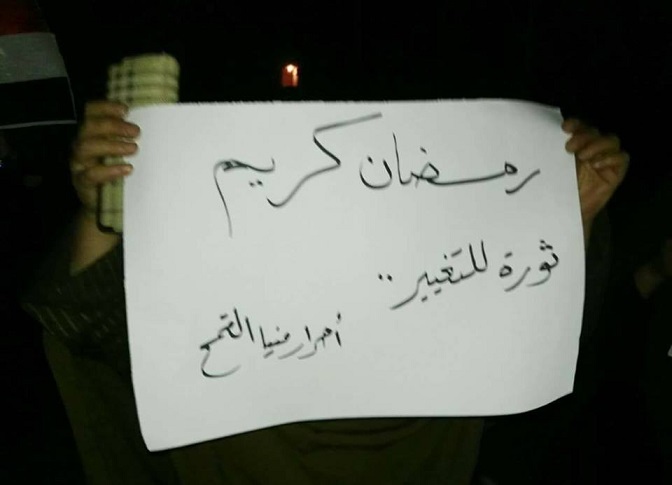 رمضان كريم
ثورة للتغيير ..
أحرار منيا القمح